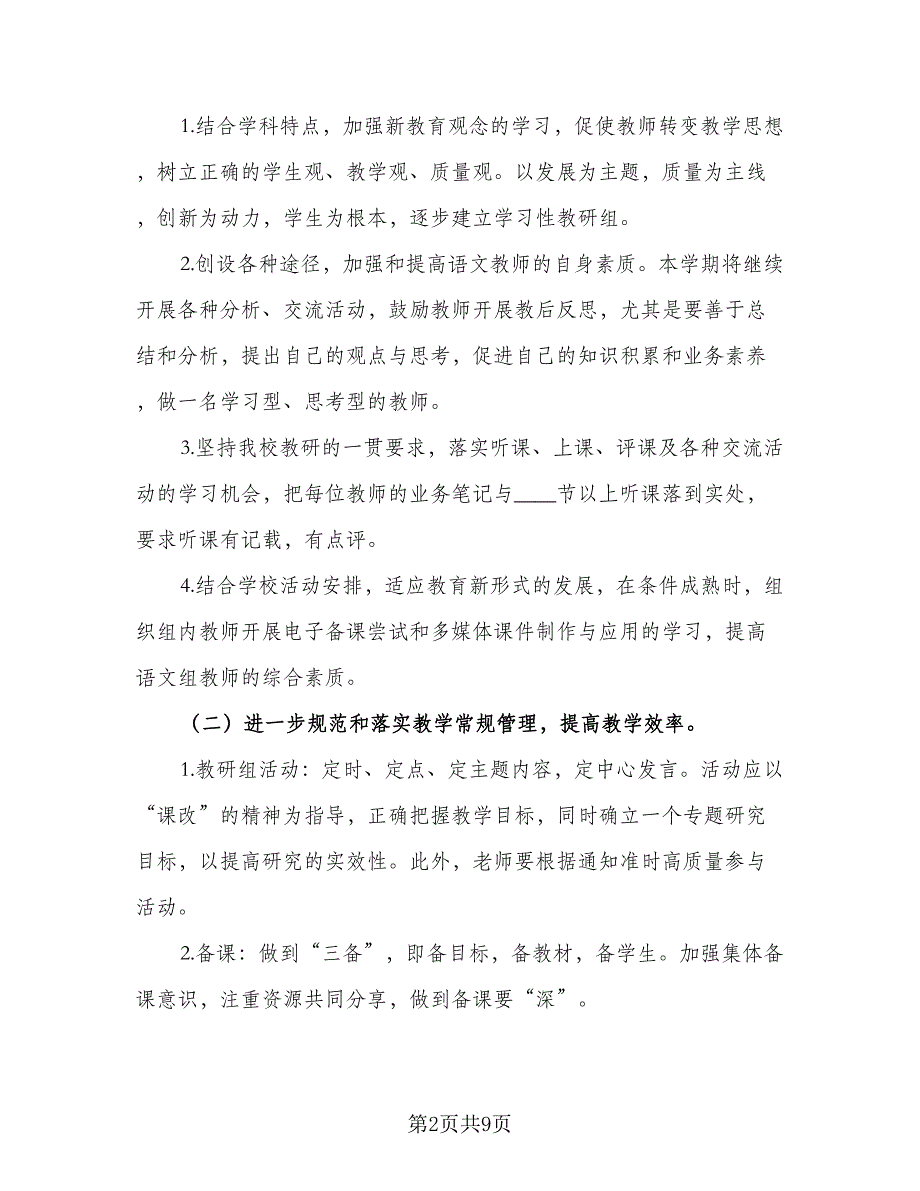 1.结合学科特点，加强新教育观念的学习，促使教师转变教学思想
，树立正确的学生观、教学观、质量观。以发展为主题，质量为主线
，创新为动力，学生为根本，逐步建立学习性教研组。
2.创设各种途径，加强和提高语文教师的自身素质。本学期将继续
开展各种分析、交流活动，鼓励教师开展教后反思，尤其是要善于总
结和分析，提出自己的观点与思考，促进自己的知识积累和业务素养
，做一名学习型、思考型的教师。
3.坚持我校教研的一贯要求，落实听课、上课、评课及各种交流活
动的学习机会，把每位教师的业务笔记与____节以上听课落到实处，
要求听课有记载，有点评。
4.结合学校活动安排，适应教育新形式的发展，在条件成熟时，组
织组内教师开展电子备课尝试和多媒体课件制作与应用的学习，提高
语文组教师的综合素质。
（二）进一步规范和落实教学常规管理，提高教学效率。
1.教研组活动：定时、定点、定主题内容，定中心发言。活动应以
“课改”的精神为指导，正确把握教学目标，同时确立一个专题研究
目标，以提高研究的实效性。此外，老师要根据通知准时高质量参与
活动。
2.备课：做到“三备”，即备目标，备教材，备学生。加强集体备
课意识，注重资源共同分享，做到备课要“深”。
第2页共9页